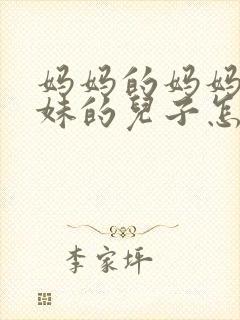 妈妈的妈妈
妹的兒子怎
李家坪